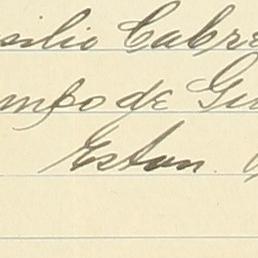 silio Cabre
mpo de Gu
Eston.